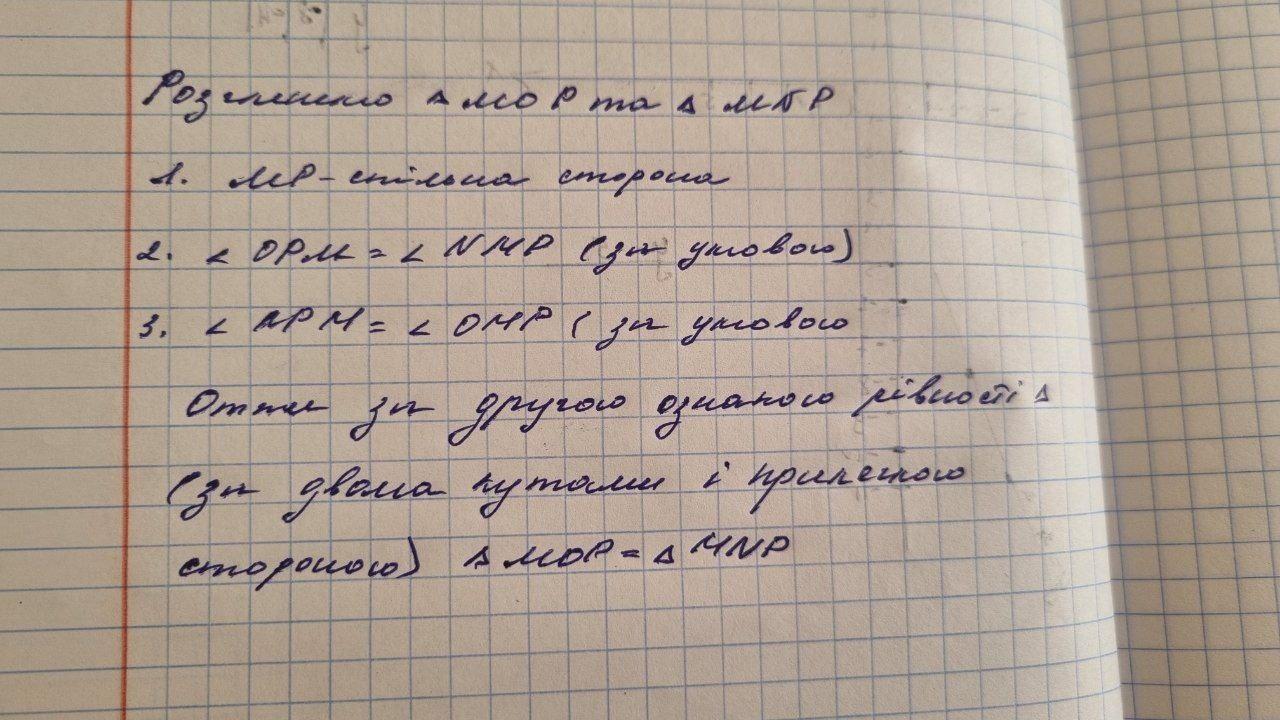 Розглянемо △ МОР та △ MNP
1. МР - спільна сторона
2. ∠ ОРМ = ∠ NMP (за умовою)
3. ∠ NPM = ∠ OMP ( за умовою
Отже за другою ознакою рівності △
(за двома кутами і прилеглою
стороною) △ МОР = △ MNP